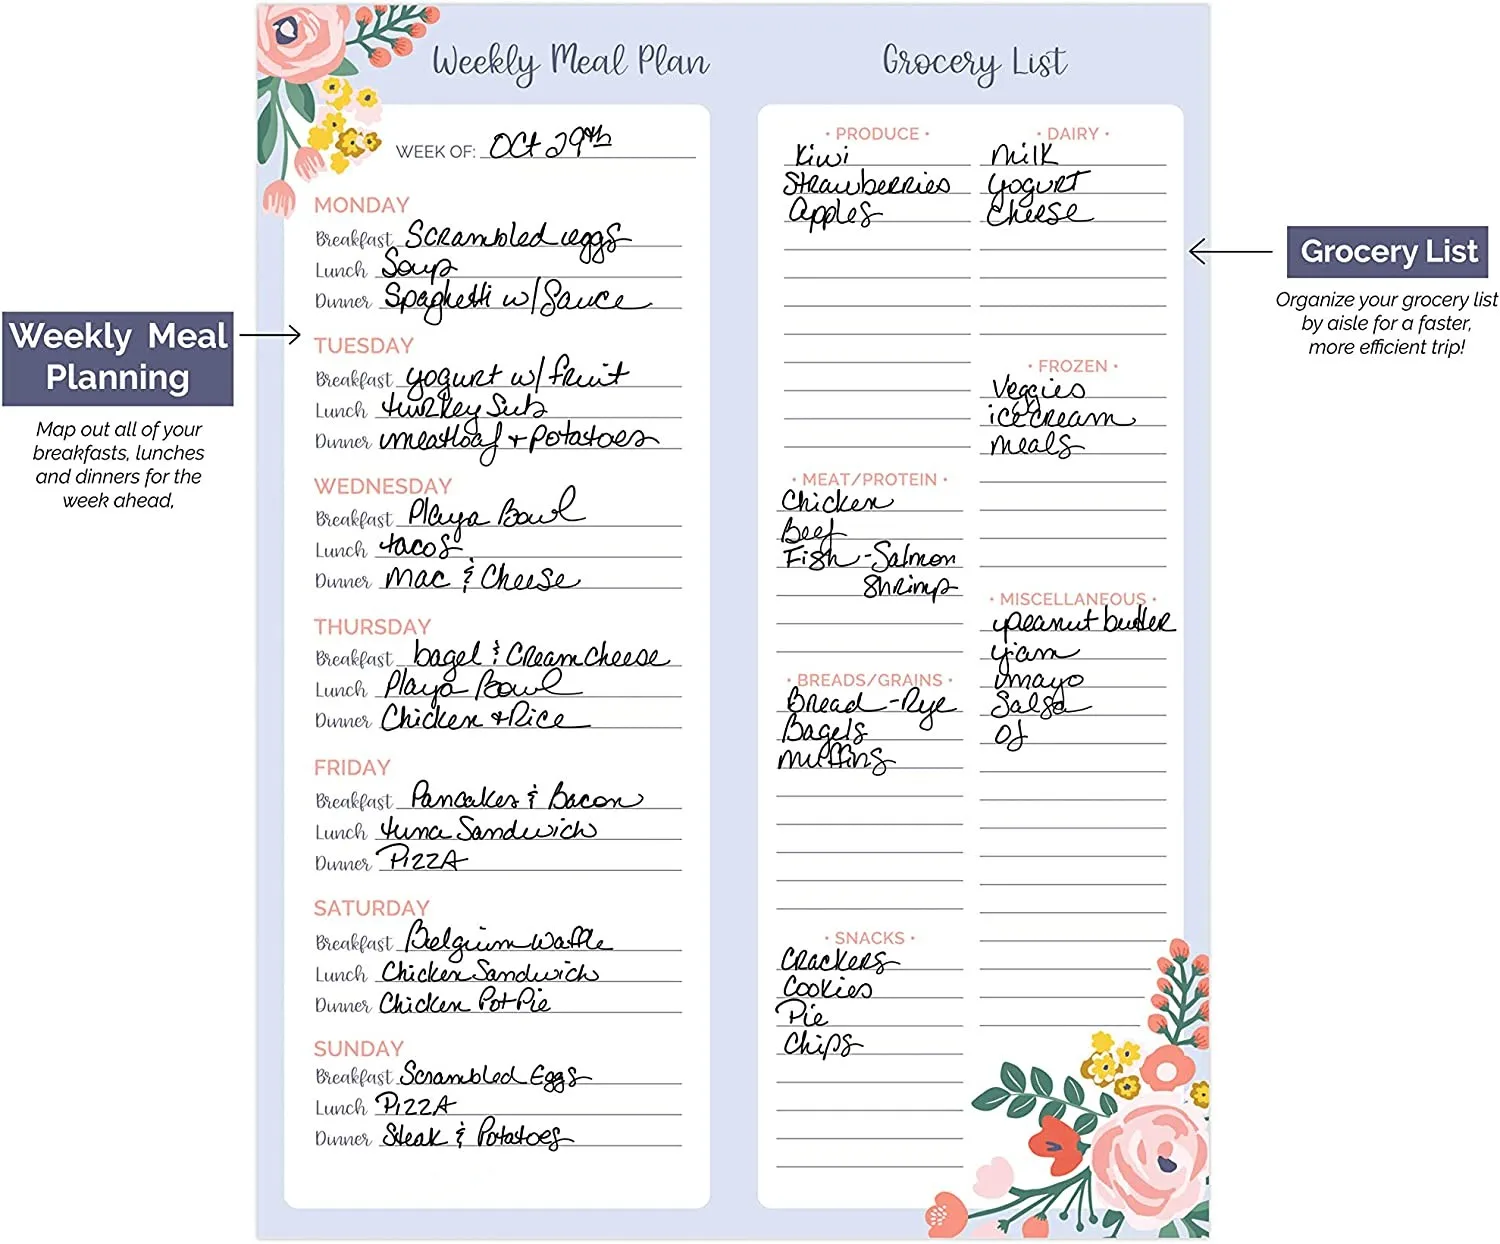 Weekly Meal Plan
WEEK OF: Oct 29th
MONDAY
Breakfast Scrambled eggs
Lunch Soup
Dinner Spaghetti w/ Sauce
TUESDAY
Breakfast yogurt w/ fruit
Lunch turkey Sub
Dinner meatloaf + Potatoes
WEDNESDAY
Breakfast Playa Bowl
Lunch tacos
Dinner Mac & Cheese
THURSDAY
Breakfast bagel & Cream cheese
Lunch Playa Bowl
Dinner Chicken + Rice
FRIDAY
Breakfast Pancakes & Bacon
Lunch tuna Sandwich
Dinner PIZZA
SATURDAY
Breakfast Belgium Waffle
Lunch Chicken Sandwich
Dinner Chicken Pot Pie
SUNDAY
Breakfast Scrambled Eggs
Lunch PIZZA
Dinner Steak & Potatoes
Grocery List
• PRODUCE •
Kiwi
Strawberries
apples
• MEAT/PROTEIN •
Chicken
Beef
Fish - Salmon
Shrimp
• BREADS/GRAINS •
Bread - Rye
Bagels
muffins
• SNACKS •
Crackers
Cookies
Pie
Chips
• DAIRY •
Milk
yogurt
Cheese
• FROZEN •
Veggies
ice cream
meals
• MISCELLANEOUS •
peanut butter
jam
mayo
Salsa
OJ
Weekly Meal
Planning
Map out all of your
breakfasts, lunches
and dinners for the
week ahead,
Grocery List
Organize your grocery list
by aisle for a faster,
more efficient trip!